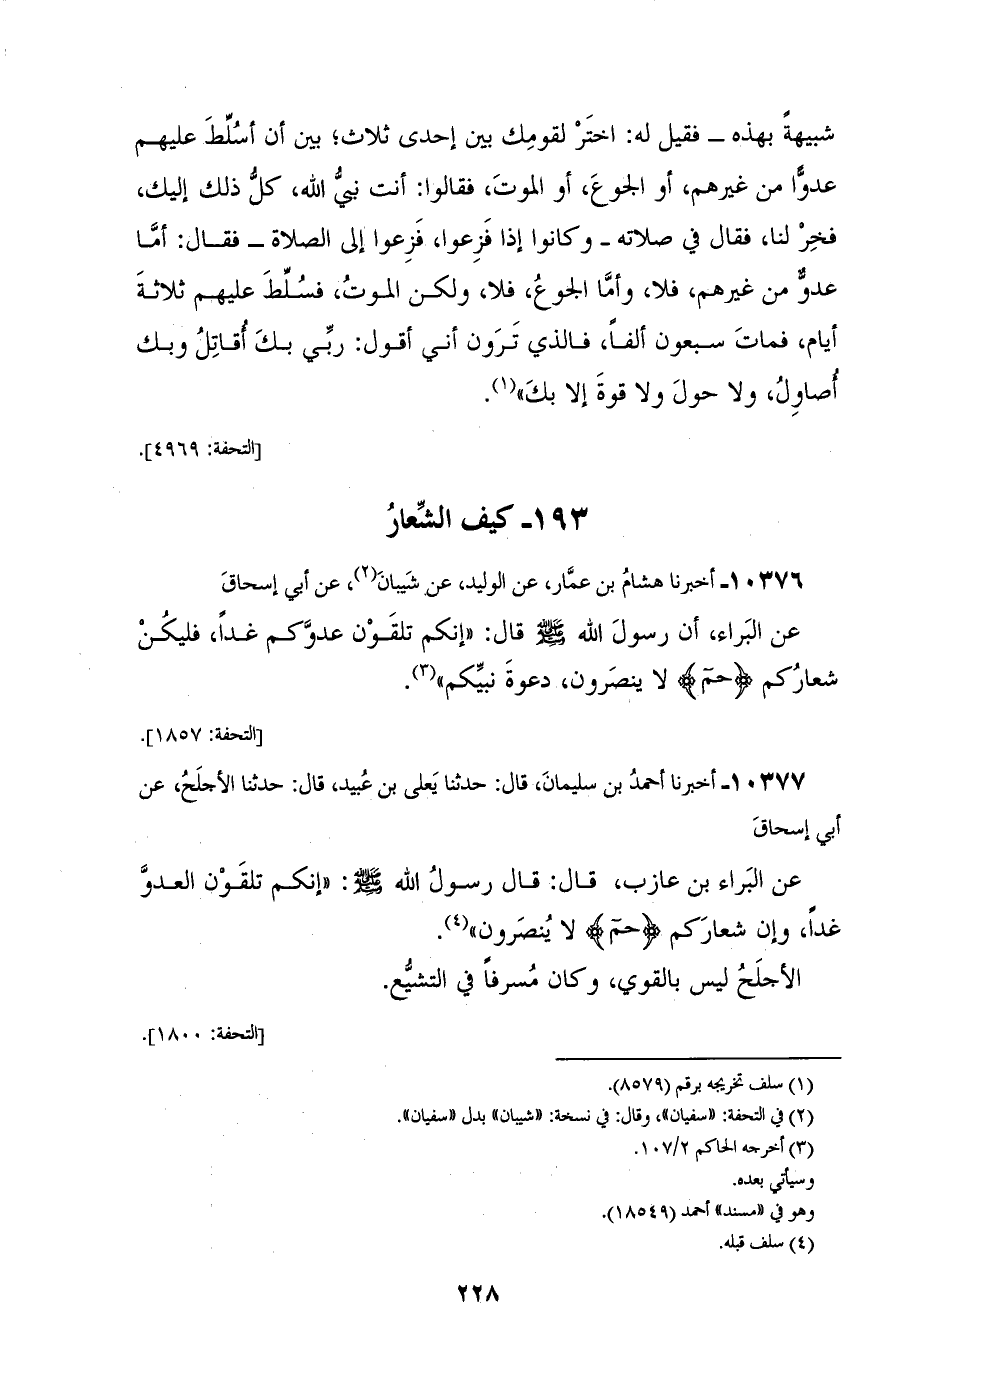 شبيهةً بهذه ــ فقيل له: اختَرْ لقومِك بين إحدى ثلاث؛ بين أن أسُلِّطَ عليهم
عدوًّا من غيرهم، أو الجوعَ، أو الموتَ، فقالوا: أنت نبيُّ الله، كلُّ ذلك إليك،
فخِرْ لنا، فقال في صلاته ـ وكانوا إذا فَزِعوا، فَزِعوا إلى الصلاة ــ فقال: أمَّا
عدوٌّ من غيرهم، فلا، وأمَّا الجوعُ، فلا، ولكن الموتُ، فسُلِّطَ عليهم ثلاثةَ
أيام، فماتَ سبعون ألفاً، فالذي تَرَون أني أقول: ربِّي بكَ أُقاتِلُ وبك
أُصاوِلُ، ولا حولَ ولا قوةَ إلا بكَ»(١).
[التحفة: ٤٩٦٩].
١٩٣ـ كيف الشِّعارُ
١٠٣٧٦ـ أخبرنا هشامُ بن عمَّار، عن الوليد، عن شَيبانَ(٢)، عن أبي إسحاقَ
عن البَراء، أن رسولَ الله ﷺ قال: «إنكم تلقَوْن عدوَّكم غداً، فليكُنْ
شعارُكم ﴿حمٓ﴾ لا ينصَرون، دعوةَ نبيِّكم»(٣).
[التحفة: ١٨٥٧].
١٠٣٧٧ـ أخبرنا أحمدُ بن سليمانَ، قال: حدثنا يَعلى بن عُبيد، قال: حدثنا الأجلَحُ، عن
أبي إسحاقَ
عن البَراء بن عازب، قال: قال رسولُ الله ﷺ: «إنكم تلقَوْن العدوَّ
غداً، وإن شعارَكم ﴿حمٓ﴾ لا يُنصَرون»(٤).
الأجلَحُ ليس بالقوي، وكان مُسرفاً في التشيُّع.
[التحفة: ١٨٠٠].
(١) سلف تخريجه برقم (٨٥٧٩).
(٢) في التحفة: «سفيان»، وقال: في نسخة: «شيبان» بدل «سفيان».
(٣) أخرجه الحاكم ١٠٧/٢.
وسيأتي بعده.
وهو في «مسند» أحمد (١٨٥٤٩).
(٤) سلف قبله.
٢٢٨